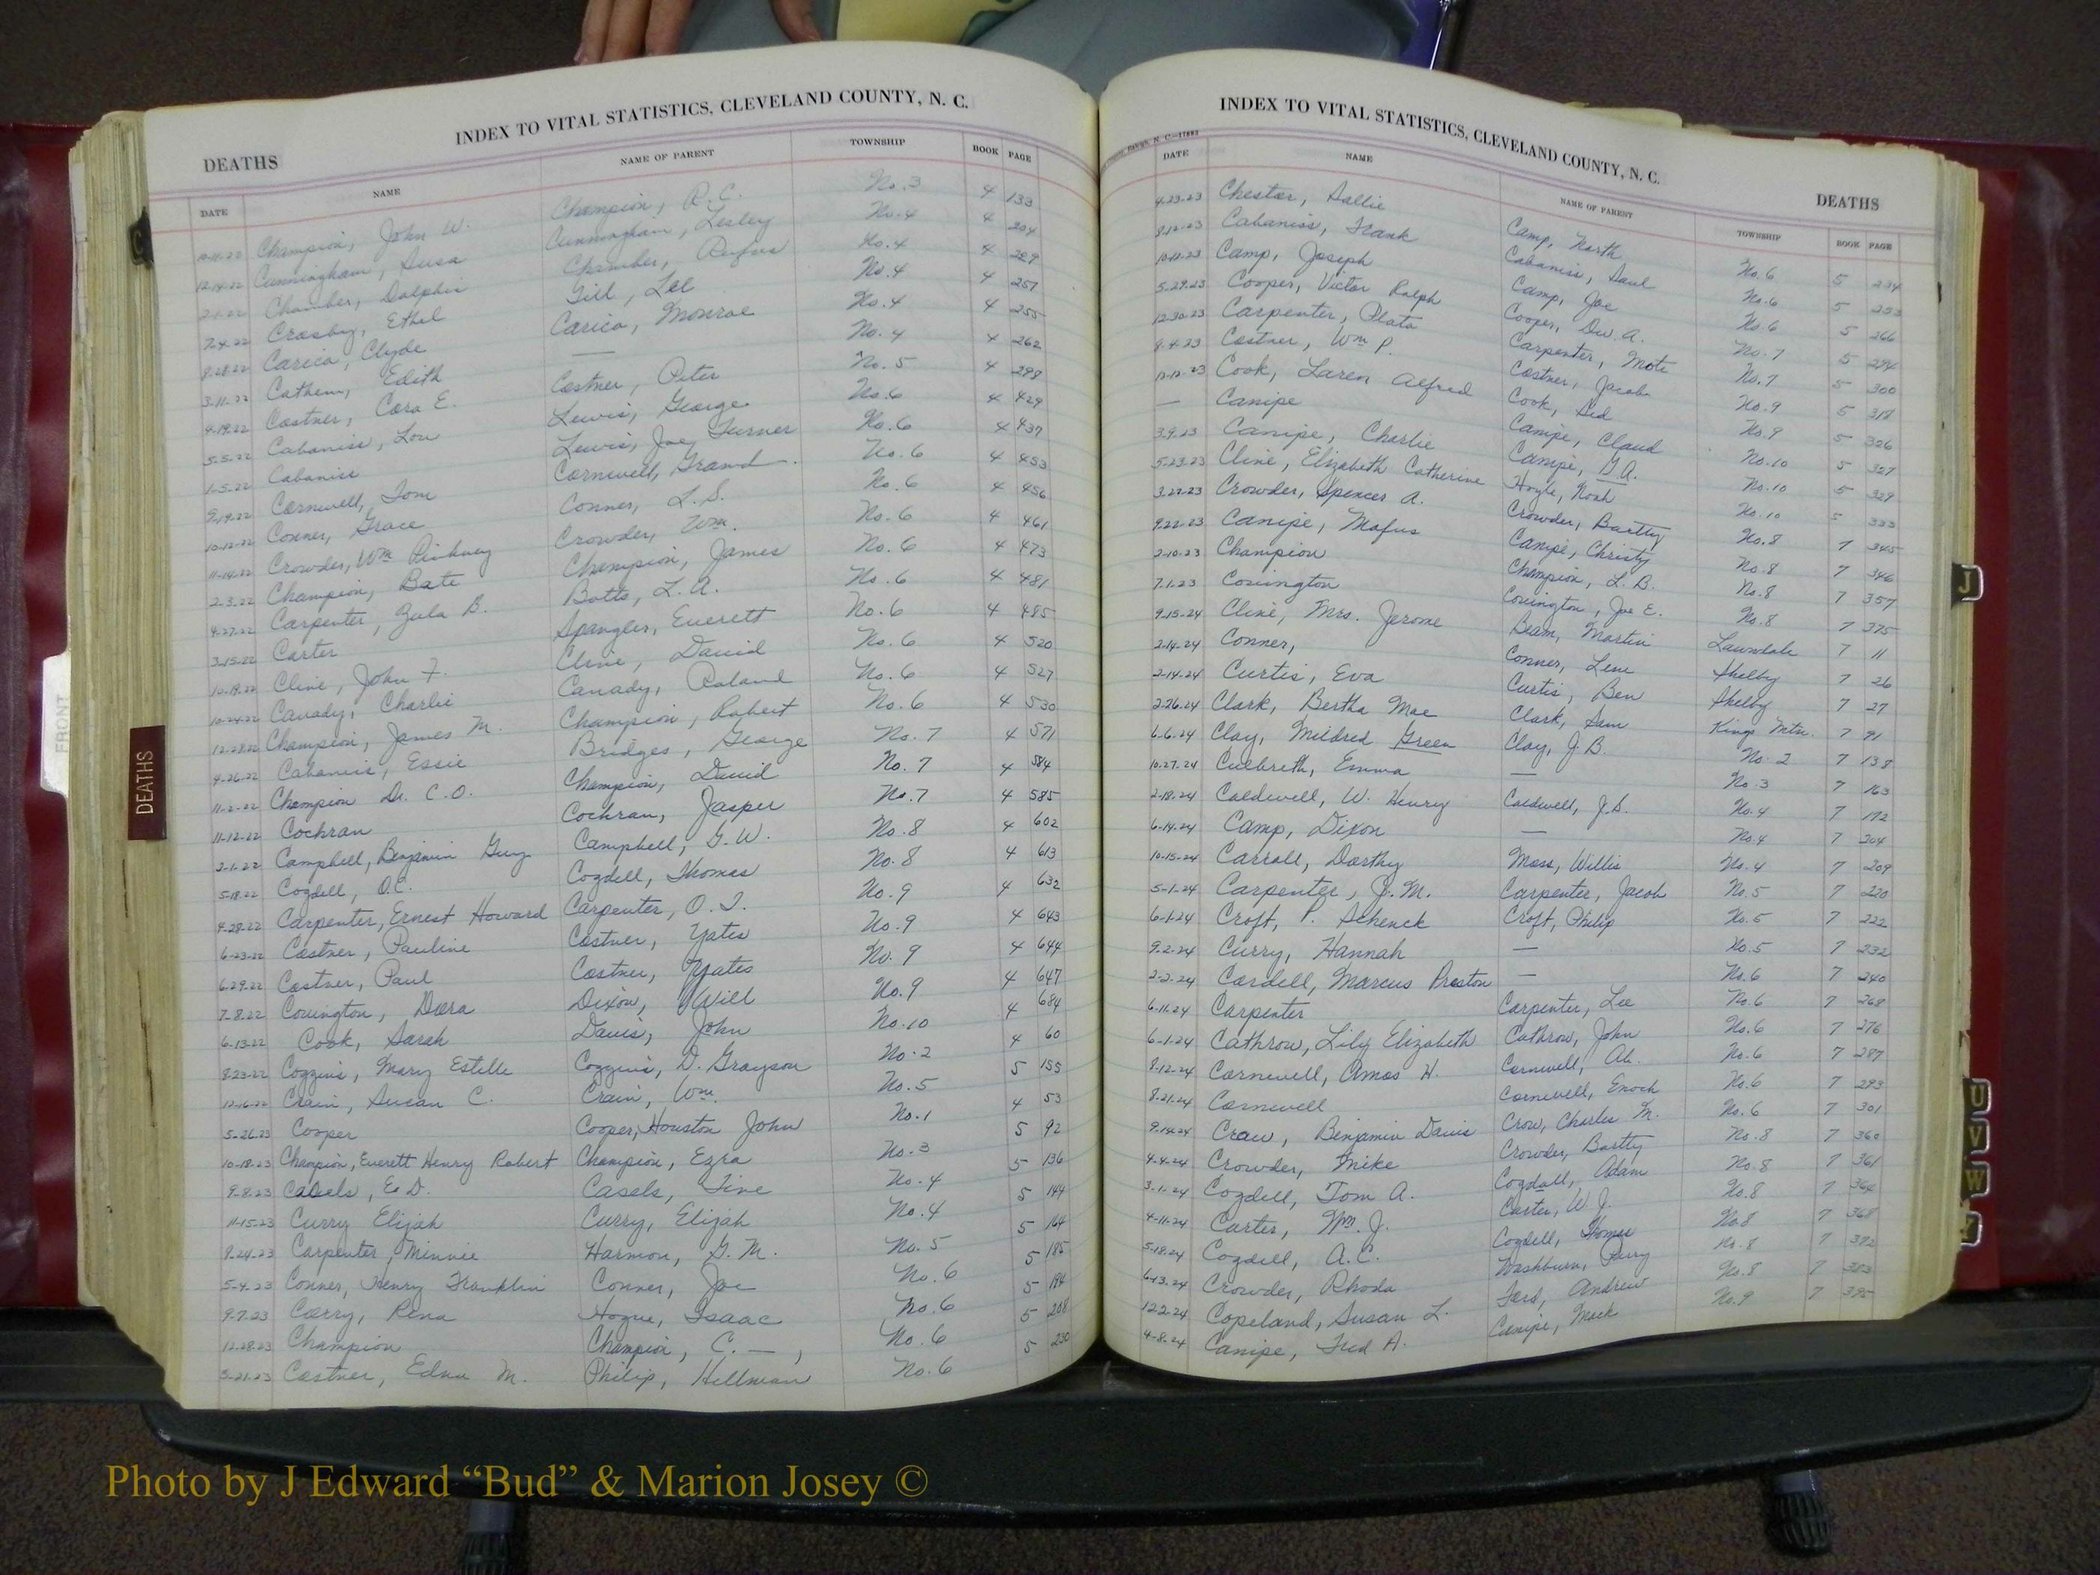 INDEX TO VITAL STATISTICS, CLEVELAND COUNTY, N. C.
DEATHS
DATE NAME NAME OF PARENT TOWNSHIP BOOK PAGE
10-11-22 Champion, John W. Champion, R. C. No. 3 4 133
12-14-22 Cunningham, Susa Cunningham, Lesley No. 4 4 204
2-1-22 Chamber, Dolphus Chamber, Rufus No. 4 4 229
7-4-22 Crosby, Ethel Gill, Lee No. 4 4 251
8-28-22 Carico, Clyde Carico, Monroe No. 4 4 255
3-11-22 Cathem, Edith — No. 4 4 262
4-19-22 Costner, Cora E. Costner, Peter No. 5 4 298
5-5-22 Cabaniss, Lou Lewis, George No. 6 4 429
1-5-22 Cabaniss Lewis, Joe Turner No. 6 4 437
9-19-22 Cornwell, Tom Cornwell, Grand No. 6 4 453
10-12-22 Conner, Grace Conner, L. S. No. 6 4 456
11-14-22 Crowder, Wm Pinkney Crowder, Wm. No. 6 4 461
2-3-22 Champion, Bate Champion, James No. 6 4 473
4-27-22 Carpenter, Zula B. Botts, L. A. No. 6 4 481
3-15-22 Carter Spangler, Everett No. 6 4 485
10-19-22 Cline, John F. Cline, David No. 6 4 520
10-24-22 Canady, Charlie Canady, Roland No. 6 4 527
12-28-22 Champion, James M. Champion, Robert No. 6 4 530
4-26-22 Cabaniss, Essie Bridges, George No. 7 4 571
11-2-22 Champion Dr. C. O. Champion, David No. 7 4 584
11-12-22 Cochran Cochran, Jasper No. 7 4 585
2-1-22 Campbell, Benjamin Guy Campbell, G. W. No. 8 4 602
5-18-22 Cogdell, O.C. Cogdell, Thomas No. 8 4 613
9-28-22 Carpenter, Ernest Howard Carpenter, O. T. No. 9 4 632
6-23-22 Costner, Pauline Costner, Yates No. 9 4 643
6-29-22 Costner, Paul Costner, Yates No. 9 4 644
7-8-22 Covington, Dora Dixon, Will No. 9 4 647
6-13-22 Cook, Sarah Davis, John No. 10 4 684
8-23-22 Coggins, Mary Estelle Coggins, D. Grayson No. 2 4 60
12-16-22 Crain, Susan C. Crain, Wm. No. 5 5 155
5-26-23 Cooper Cooper, Houston John No. 1 4 53
10-18-23 Champion, Everett Henry Robert Champion, Ezra No. 3 5 92
9-8-23 Casels, E. D. Casels, Tine No. 4 5 136
11-15-23 Curry Elijah Curry, Elijah No. 4 5 144
8-24-23 Carpenter, Minnie Harmon, G. M. No. 5 5 164
5-4-23 Conner, Henry Franklin Conner, Joe No. 6 5 185
9-7-23 Carry, Rena Hogue, Isaac No. 6 5 194
12-28-23 Champion Champion, C. —, No. 6 5 208
5-21-23 Costner, Edna M. Philip, Hillman No. 6 5 230
INDEX TO VITAL STATISTICS, CLEVELAND COUNTY, N. C.
DEATHS
DATE NAME NAME OF PARENT TOWNSHIP BOOK PAGE
4-23-23 Chester, Sallie Camp, North No. 6 5 234
8-12-23 Cabaniss, Frank Cabaniss, Saul No. 6 5 253
10-11-23 Camp, Joseph Camp, Joe No. 6 5 266
5-29-23 Cooper, Victor Ralph Cooper, Dw. A. No. 7 5 294
12-30-23 Carpenter, Plato Carpenter, Mote No. 7 5 300
8-4-23 Costner, Wm P. Costner, Jacob No. 9 5 318
12-12-23 Cook, Laren Alfred Cook, Sid No. 9 5 326
— Canipe Canipe, Claud No. 10 5 327
3-9-23 Canipe, Charlie Canipe, G. A. No. 10 5 329
5-23-23 Cline, Elizabeth Catherine Hoyle, Noah No. 10 5 333
3-22-23 Crowder, Spencer A. Crowder, Bartty No. 8 7 345
9-22-23 Canipe, Mofus Canipe, Christy No. 8 7 346
2-10-23 Champion Champion, L. B. No. 8 7 357
7-1-23 Covington Covington, Joe E. No. 8 7 375
9-15-24 Cline, Mrs. Jerome Beam, Martin Lawndale 7 11
2-14-24 Conner, Conner, Lem Shelby 7 26
2-14-24 Curtis, Eva Curtis, Ben Shelby 7 27
2-26-24 Clark, Bertha Mae Clark, Sam Kings Mtn. 7 91
6-6-24 Clay, Mildred Green Clay, J. B. No. 2 7 138
10-27-24 Culbreth, Emma — No. 3 7 163
2-18-24 Caldwell, W. Henry Caldwell, J. S. No. 4 7 192
6-14-24 Camp, Dixon — No. 4 7 204
10-15-24 Carroll, Dorthy Moss, Willis No. 4 7 209
5-1-24 Carpenter, J. M. Carpenter, Jacob No. 5 7 220
6-1-24 Croft, P. Schenck Croft, Philip No. 5 7 222
9-2-24 Curry, Hannah — No. 5 7 232
2-2-24 Cordell, Marcus Preston — No. 6 7 240
6-11-24 Carpenter Carpenter, Lee No. 6 7 268
6-1-24 Cathrow, Lily Elizabeth Cathrow, John No. 6 7 276
8-12-24 Cornwell, Amos H. Cornwell, Ab. No. 6 7 287
8-21-24 Cornwell Cornwell, Enoch No. 6 7 293
9-14-24 Crow, Benjamin Davis Crow, Charles M. No. 6 7 301
4-4-24 Crowder, Mike Crowder, Bartty No. 8 7 360
3-1-24 Cogdell, Tom A. Cogdell, Adam No. 8 7 361
4-11-24 Carter, Wm. J. Carter, W. J. No. 8 7 364
5-18-24 Cogdell, A.C. Cogdell, Thomas No 8 7 368
6-13-24 Crowder, Rhoda Washburn, Perry No. 8 7 372
12-2-24 Copeland, Susan L. Ford, Andrew No. 8 7 383
4-8-24 Canipe, Fred A. Canipe, Mack No. 9 7 395
DEATHS
FRONT
J
U
V
W
Photo by J Edward “Bud” & Marion Josey ©